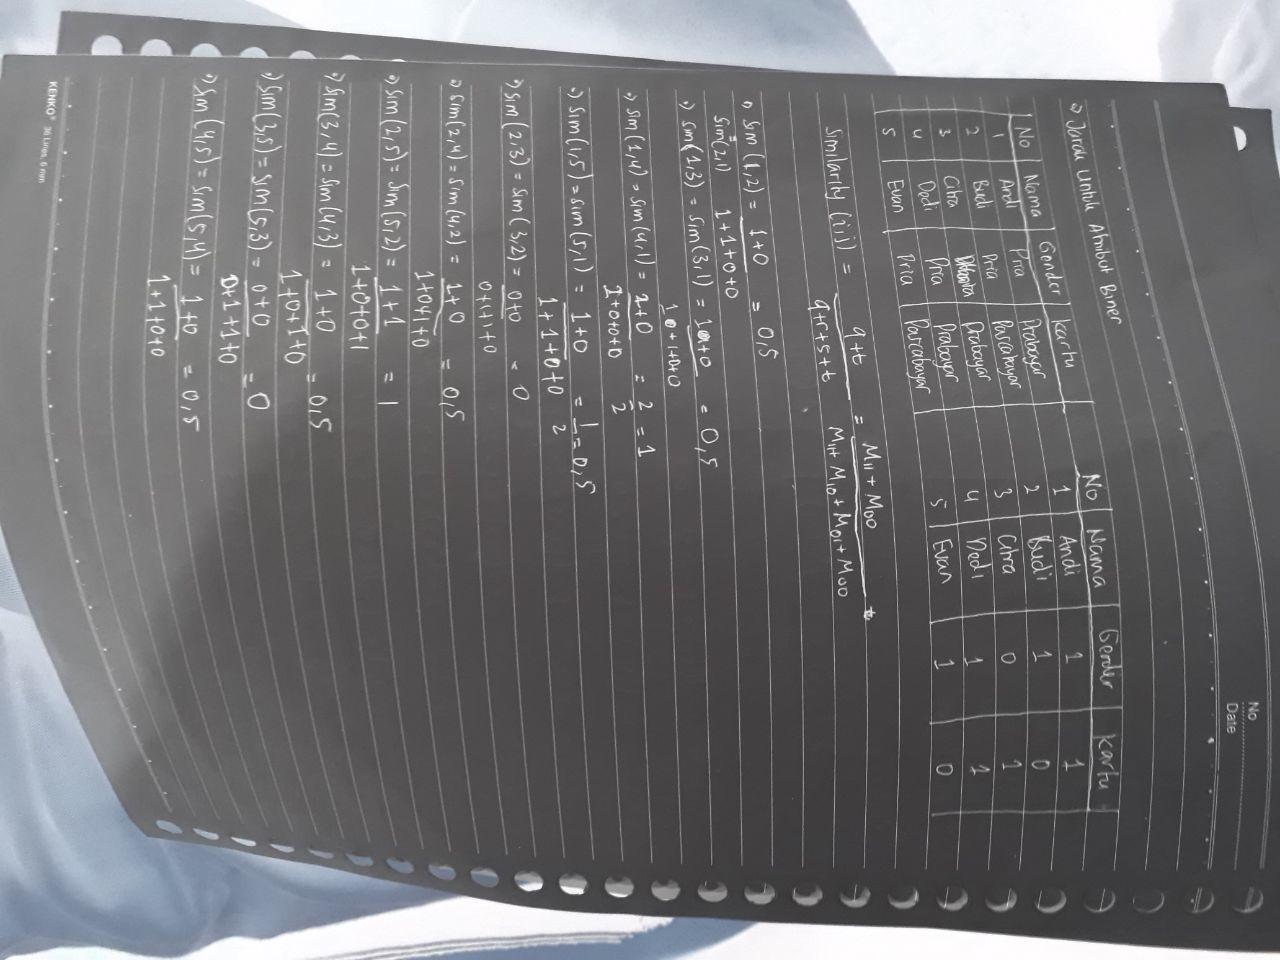 No
Date
Jarak Untuk Atribut Biner
No Nama Gender Kartu
1 Andi Pria Prabayar
2 Budi Pria Pascabayar
3 Citra Wanita Prabayar
4 Dedi Pria Prabayar
5 Evan Pria Pascabayar
No Nama Gender Kartu
1 Andi 1 1
2 Budi 1 0
3 Citra 0 1
4 Dedi 1 1
5 Evan 1 0
Similarity (i,j) = q+t / q+r+s+t = M11 + M00 / M11 + M10 + M01 + M00
Sim (1,2) = 1+0 / 1+1+0+0 = 0,5
= Sim(2,1)
Sim(1,3) = Sim(3,1) = 1+0 / 1+0+1+0+0 = 0,5
Sim(1,4) = Sim(4,1) = 2+0 / 2+0+0+0 = 2/2 = 1
Sim(1,5) = Sim(5,1) = 1+0 / 1+1+0+0 = 1/2 = 0,5
Sim(2,3) = Sim(3,2) = 0+0 / 0+1+1+0 = 0
Sim(2,4) = Sim(4,2) = 1+0 / 1+0+1+0 = 0,5
Sim(2,5) = Sim(5,2) = 1+1 / 1+0+0+1 = 1
Sim(3,4) = Sim(4,3) = 1+0 / 1+0+1+0 = 0,5
Sim(3,5) = Sim(5,3) = 0+0 / 0+1+1+0 = 0
Sim(4,5) = Sim(5,4) = 1+0 / 1+1+0+0 = 0,5
KENKO® 36 Lines, 6 mm